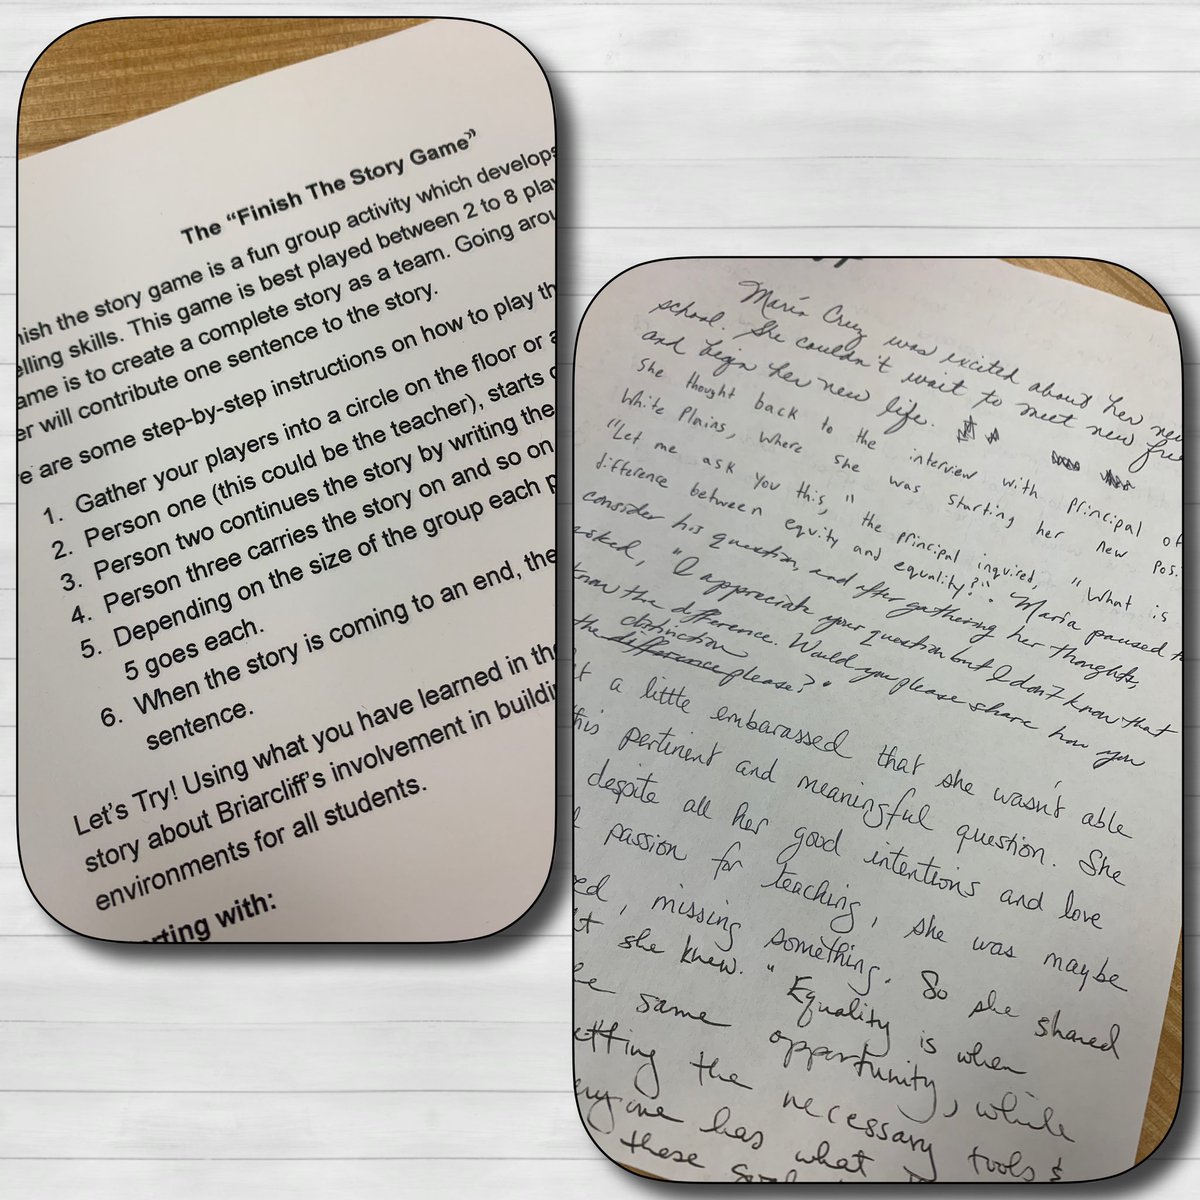 The “Finish The Story Game”
nish the story game is a fun group activity which develops
elling skills. This game is best played between 2 to 8 play
ame is to create a complete story as a team. Going arou
er will contribute one sentence to the story.
e are some step-by-step instructions on how to play th
1. Gather your players into a circle on the floor or a
2. Person one (this could be the teacher), starts
3. Person two continues the story by writing the
4. Person three carries the story on and so on
5. Depending on the size of the group each p
5 goes each.
6. When the story is coming to an end, the
sentence.
Let's Try! Using what you have learned in the
story about Briarcliff's involvement in buildin
environments for all students.
rting with:
María Cruz was excited about her new
school. She couldn't wait to meet new frie
and begin her new life.
She thought back to the interview with principal of
White Plains, where she was starting her new pos.
"Let me ask you this," the principal inquired, "What is
difference between equity and equality?". María paused t
consider his question, and after gathering her thoughts,
asked, "I appreciate your question but I don't know that
know the difference. Would you please share how you
distinction
the difference please?".
t a little embarassed that she wasn't able
this pertinent and meaningful question. She
despite all her good intentions and love
passion for teaching, she was maybe
ed, missing something. So she shared
t she knew. "Equality is when
e same opportunity, while
etting the necessary tools &
eryone has what
these